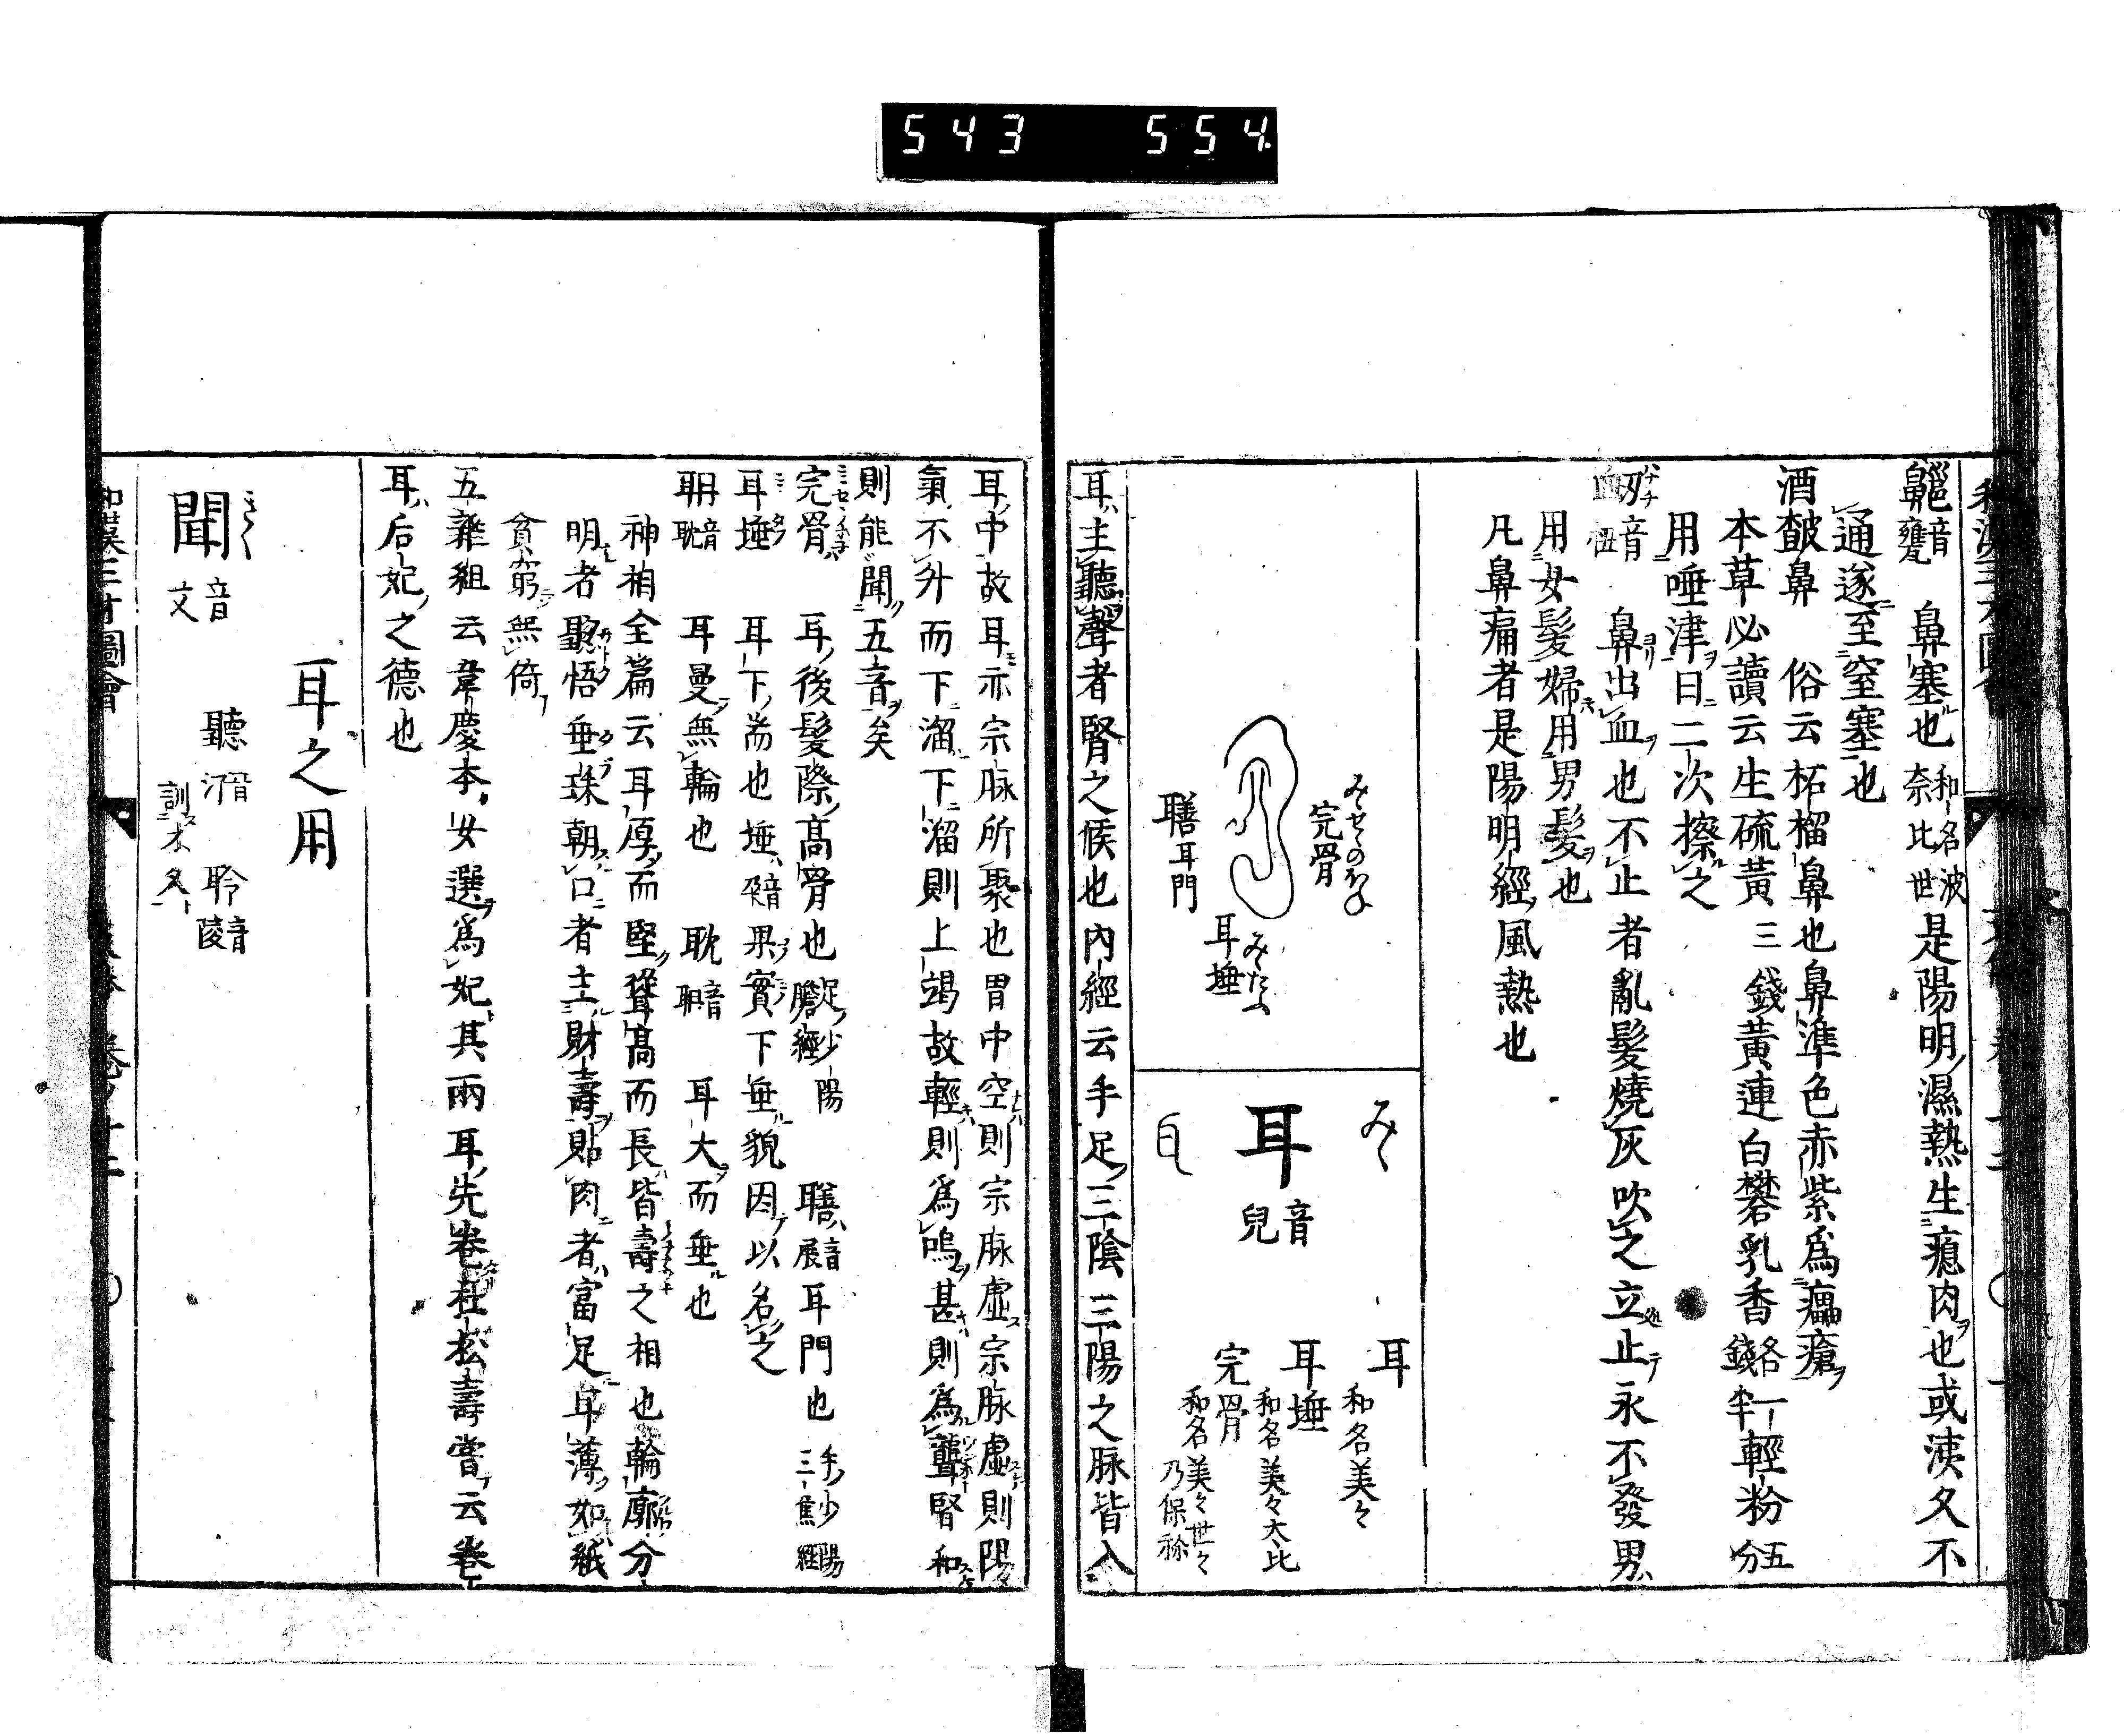 543 554
齆 音甕 鼻塞也 和名波奈比世 是陽明濕熱生瘜肉也或洟久不
通遂至窒塞也
酒皶鼻 俗云柘榴鼻也鼻準色赤紫爲𤺋瘡
本草必讀云生硫黃三錢黃連白礬乳香各一錢半輕粉五分
用唾津日二次擦之
衄 音忸 鼻出血也不止者亂髮燒灰吹之立止永不發男
用女髮婦用男髮也
凡鼻痛者是陽明經風熱也
みゝせゝのほね
完骨
みゝたぶ
耳埵
䏼 耳門
みゝ
耳 音兒
耳 和名美々
耳埵 和名美々太比
完骨 和名美々世々乃保祢
耳主聽聲者腎之候也內經云手足三陰三陽之脉皆入
耳中故耳亦宗脉所聚也胃中空則宗脉虛宗脉虛則陽
氣不升而下溜下溜則上竭故輕則爲鳴甚則爲聾腎和
則能聞五音矣
完骨 耳後髮際高骨也 足少陽膽經 䏼 音展 耳門也 手少陽三焦經
耳埵 耳下耑也埵音朶果實下垂貌因以名之
耼 音耽 耳曼無輪也 耽 音耼 耳大而垂也
神相全篇云耳厚而堅聳高而長皆壽之相也輪廓分
明者聰悟垂珠朝口者主財壽貼肉者富足耳薄如紙
貧窮無倚
五雜組云韋慶本女選爲妃其兩耳先卷杜松壽嘗云卷
耳后妃之德也
耳之用
きく
聞 音文
聽
聆 音陵
和漢三才圖會